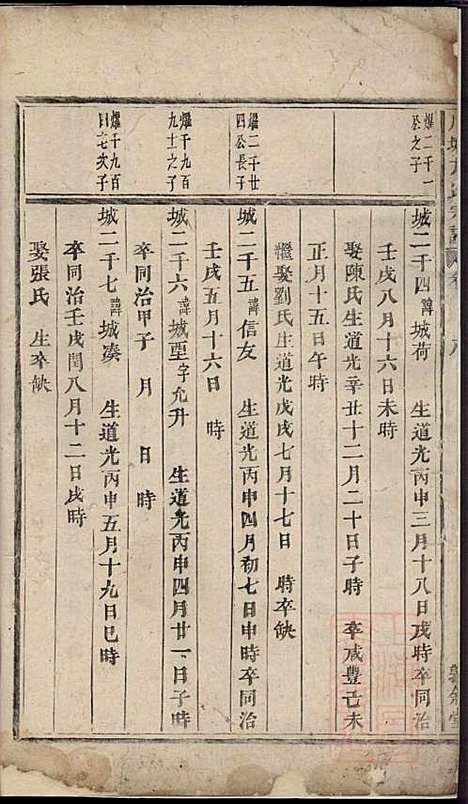 爗二千一
公之子
城二千四諱城荷 生道光丙申三月十八日戌時卒同治
壬戌八月十六日未時
娶陳氏生道光辛丑十二月二十日子時 卒咸豐己未
正月十五日午時
繼娶劉氏生道光戊戌七月十七日 時卒缺
爗二千廿
四公長子
城二千五諱信友 生道光丙申四月初七日申時卒同治
壬戌五月十六日 時
爗千九百
九十之子
城二千六諱城堊字允升 生道光丙申四月廿一日子時
卒同治甲子 月 日 時
爗千九百
日七次子
城二千七諱城湊 生道光丙申五月十九日巳時
卒同治壬戌閏八月十二日戌時
娶張氏 生卒缺